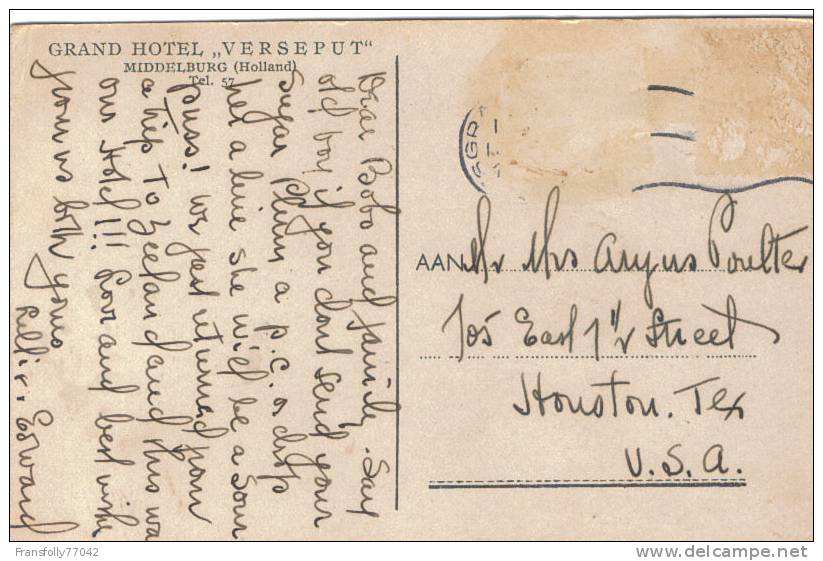 GRAND HOTEL „VERSEPUT"
MIDDELBURG (Holland)
Tel. 57
Dear Bobo and family. Say
old boy if you dont send your
Sugar Plum a p.c. or drop
her a line she will be a Sour
Puss! we just returned from
a trip to Zeeland and this was
our Hotel!!! Love and best wishes
from us both yours
Edward
AAN Mr Mrs Angus Poulter
105 East 7½ Street
Houston. Tex
U.S.A.
Fransfolly77042
www.delcampe.net